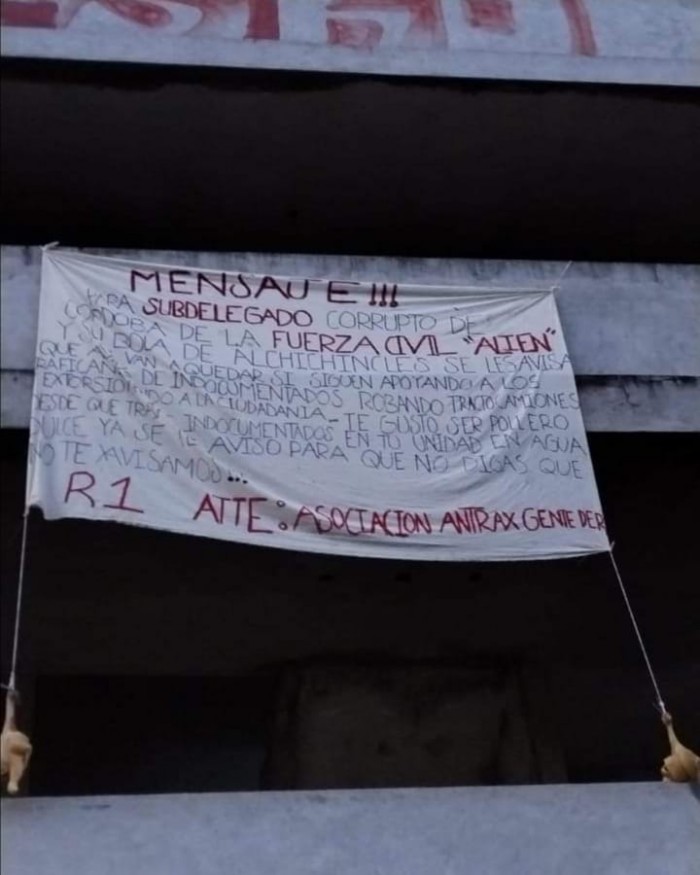 MENSAJE!!!
PARA SUBDELEGADO CORRUPTO DE
CÓRDOBA DE LA FUERZA CIVIL "ALIEN"
Y SU BOLA DE ALCHICHINCLES SE LES AVISA
QUE VAN A QUEDAR SI SIGUEN APOYANDO A LOS
DE INDOCUMENTADOS ROBANDO TRACTO CAMIONES
A LA CIUDADANIA - TE GUSTO SER POLLERO
DESDE QUE INDOCUMENTADOS EN TU UNIDAD EN AGUA
DULCE YA SE TE AVISO PARA QUE NO DIGAS QUE
NO TE AVISAMOS...
R1 ATTE: ASOCIACION ANTRAX GENTE DE R